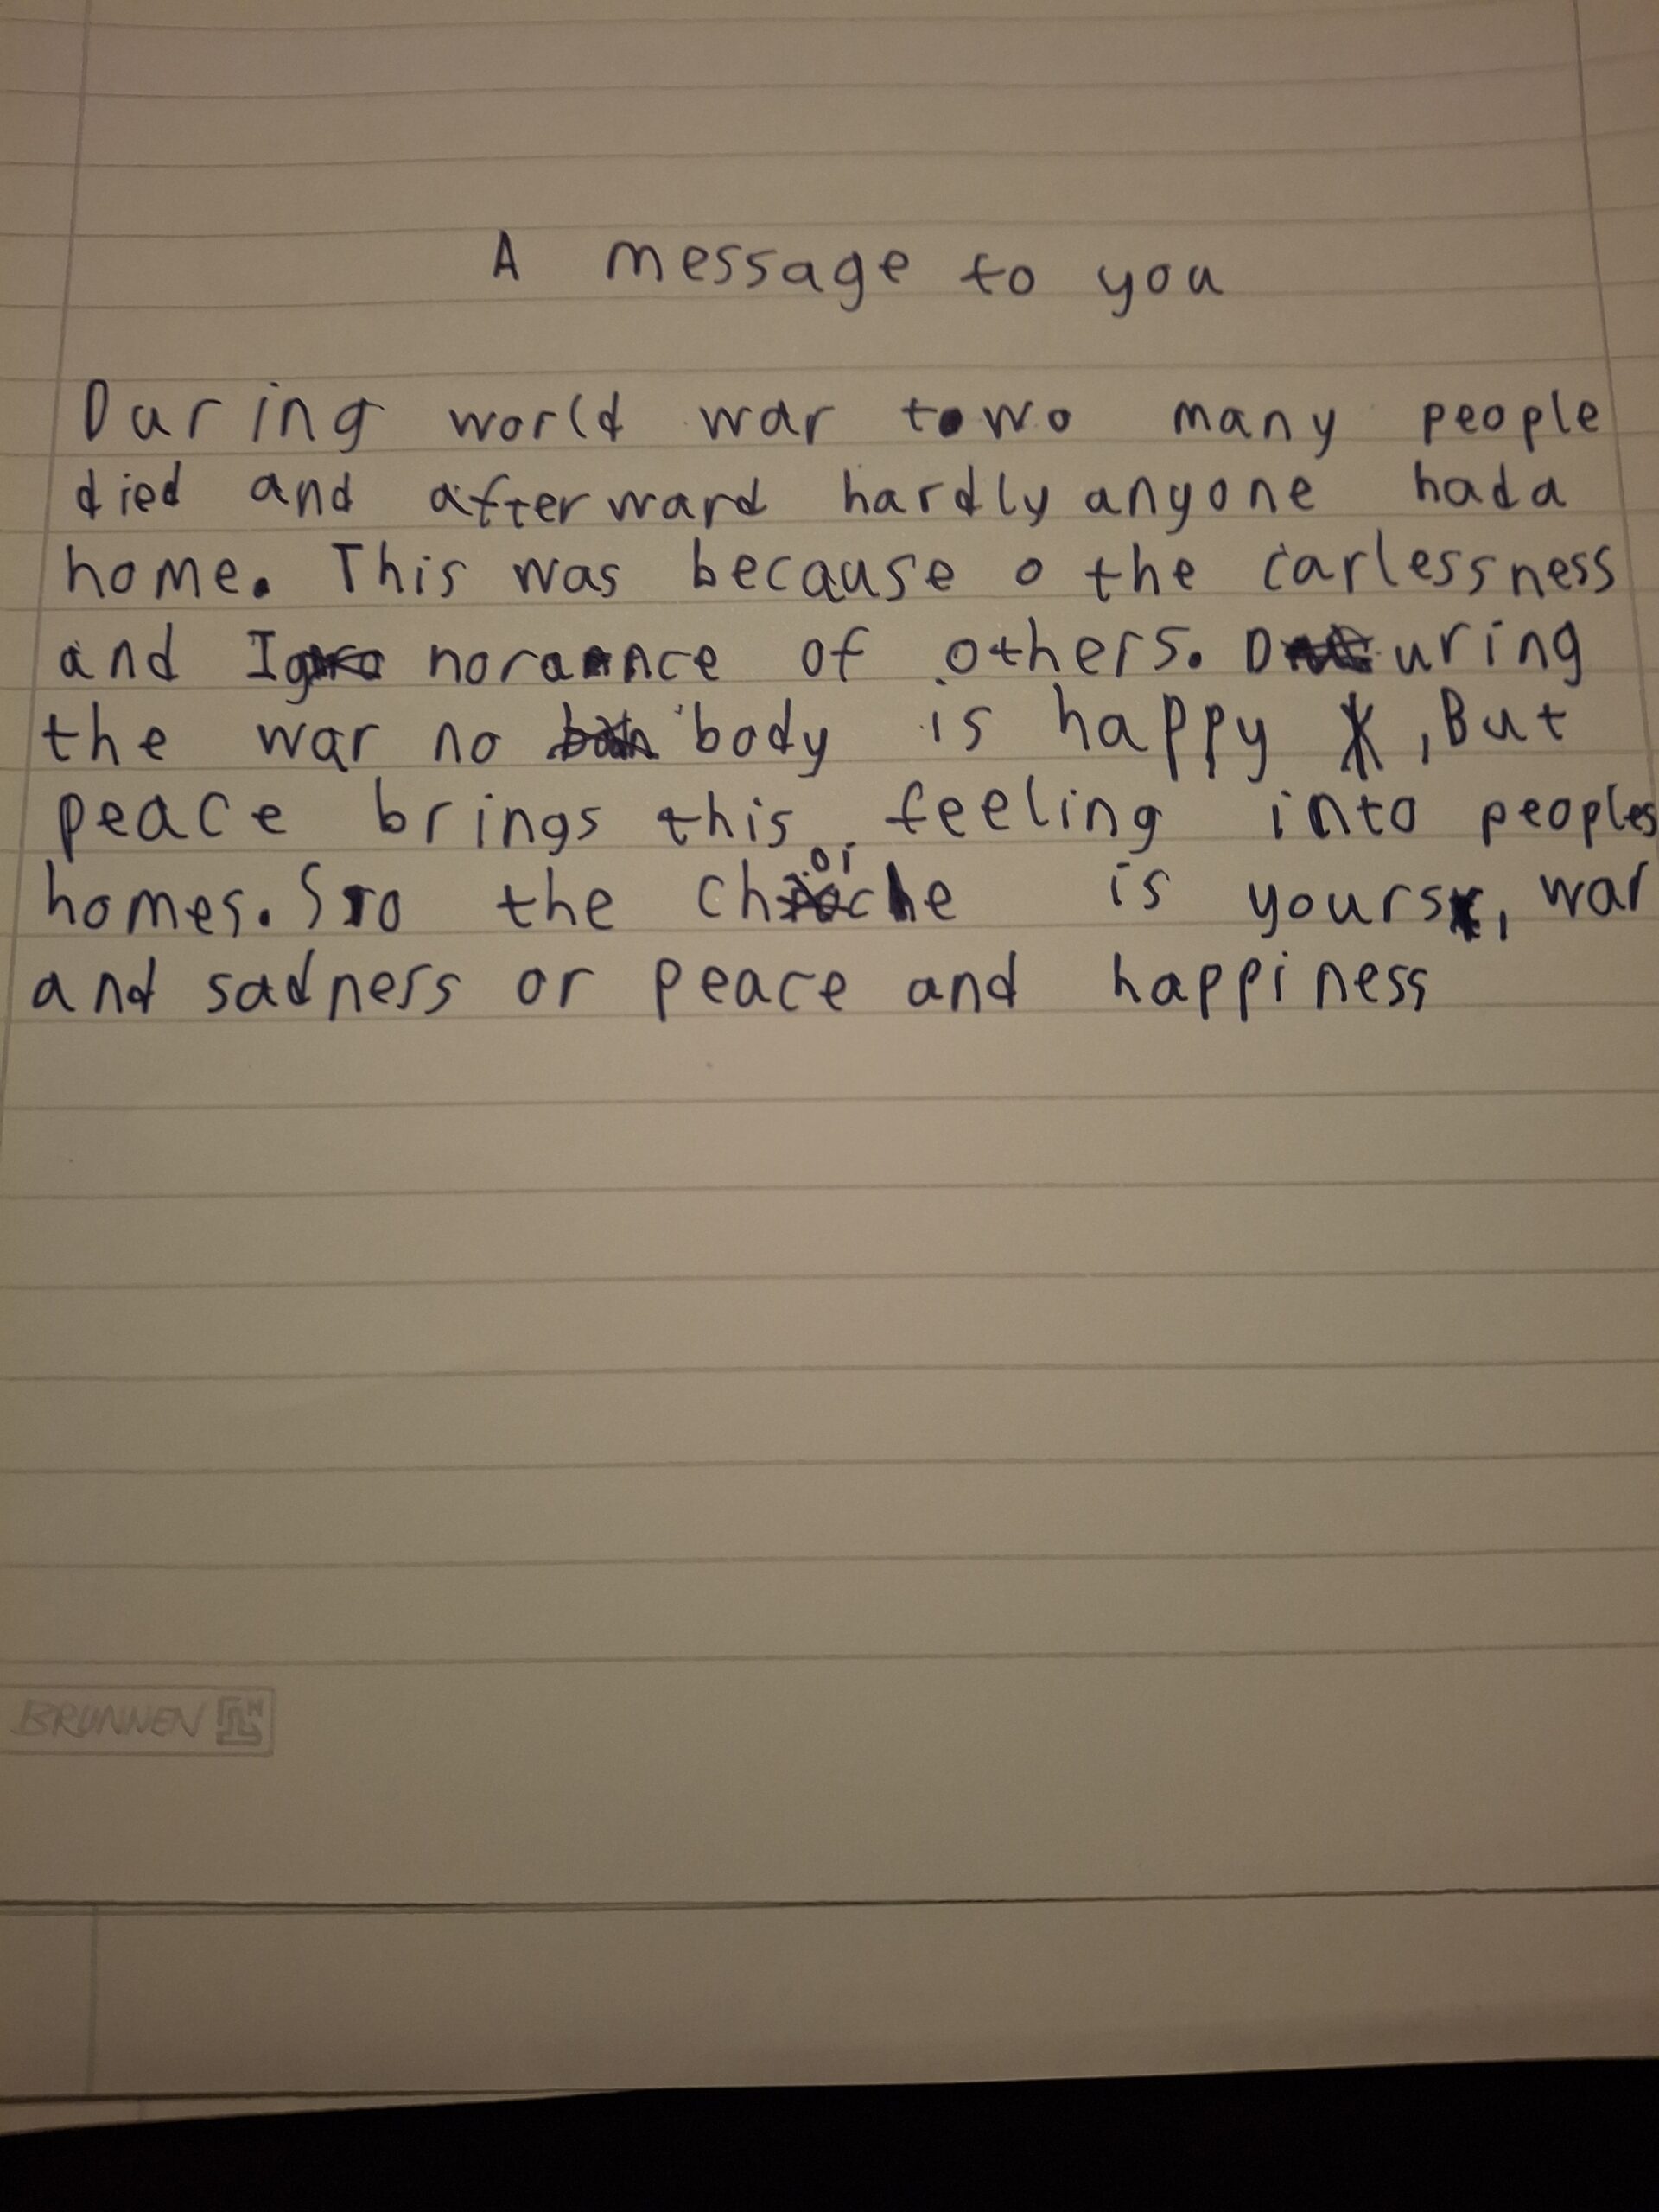 A message to you
During world war two many people
died and afterward hardly anyone had a
home. This was because o the carlessness
and Ignorance of others. During
the war no body is happy , But
peace brings this feeling into peoples
homes. So the choice is yours, war
and sadness or peace and happiness
BRUNNEN